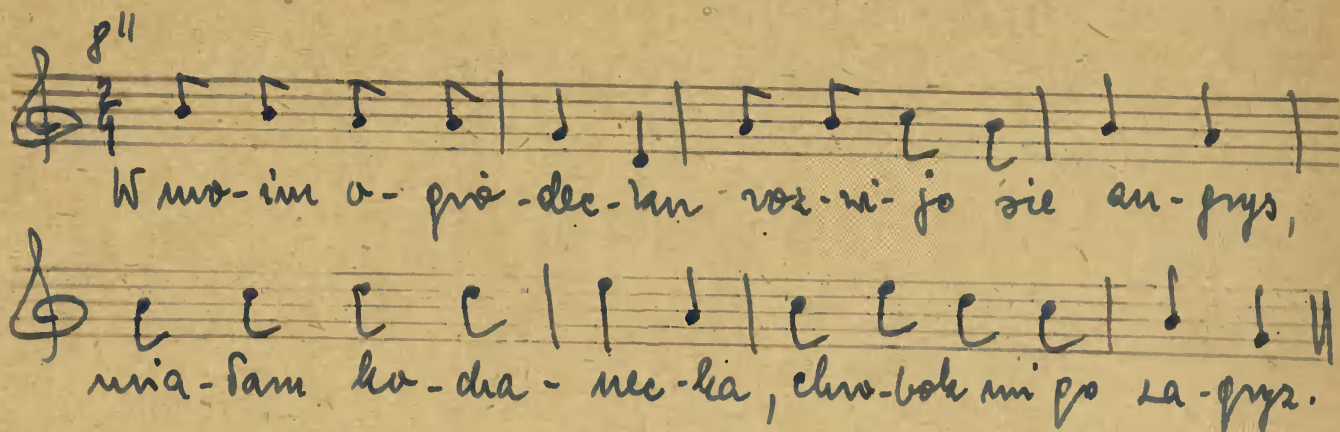 8"
2/4
W mo-im o-gró-dec-kau roz-wi-jo sie an-grys,
mia-łam ko-cha-nec-ka, chro-bok mi go za-gryz.